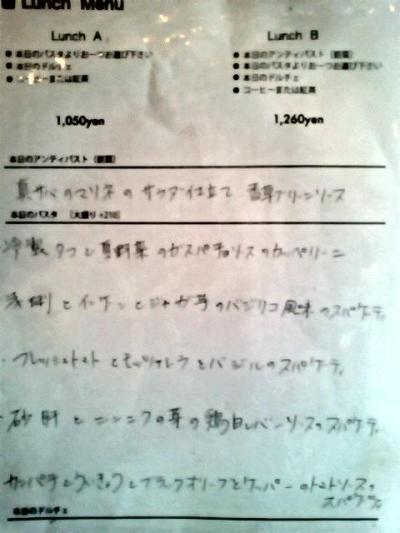 Lunch Menu
Lunch A
● 本日のパスタよりお一つお選び下さい
● 本日のドルチェ
● コーヒーまたは紅茶
1,050yen
Lunch B
● 本日のアンティパスト (前菜)
● 本日のパスタよりお一つお選び下さい
● 本日のドルチェ
● コーヒーまたは紅茶
1,260yen
本日のアンティパスト (前菜)
真サバのマリネのサラダ仕立て 香草グリーンソース
本日のパスタ (大盛り+210)
冷製タコと夏野菜のガスパチョソースのカッペリーニ
浅利とインゲンとジャガ芋のバジリコ風味のスパゲティ
・フレッシュトマトとモッツァレラとバジルのスパゲティ
・砂肝とニンニクの芽の鶏白レバーソースのスパゲティ
カンパチと とブラックオリーブとケッパーのトマトソースの
スパゲティ
本日のドルチェ